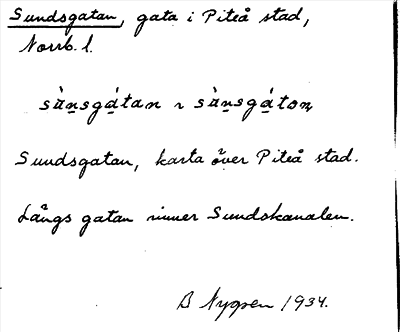 Sundsgatan, gata i Piteå stad,
Norrb. l.
sànsgátan ~ sànsgáton
Sundsgatan, karta över Piteå stad.
Längs gatan rinner Sundskanalen.
B Nygren 1934.